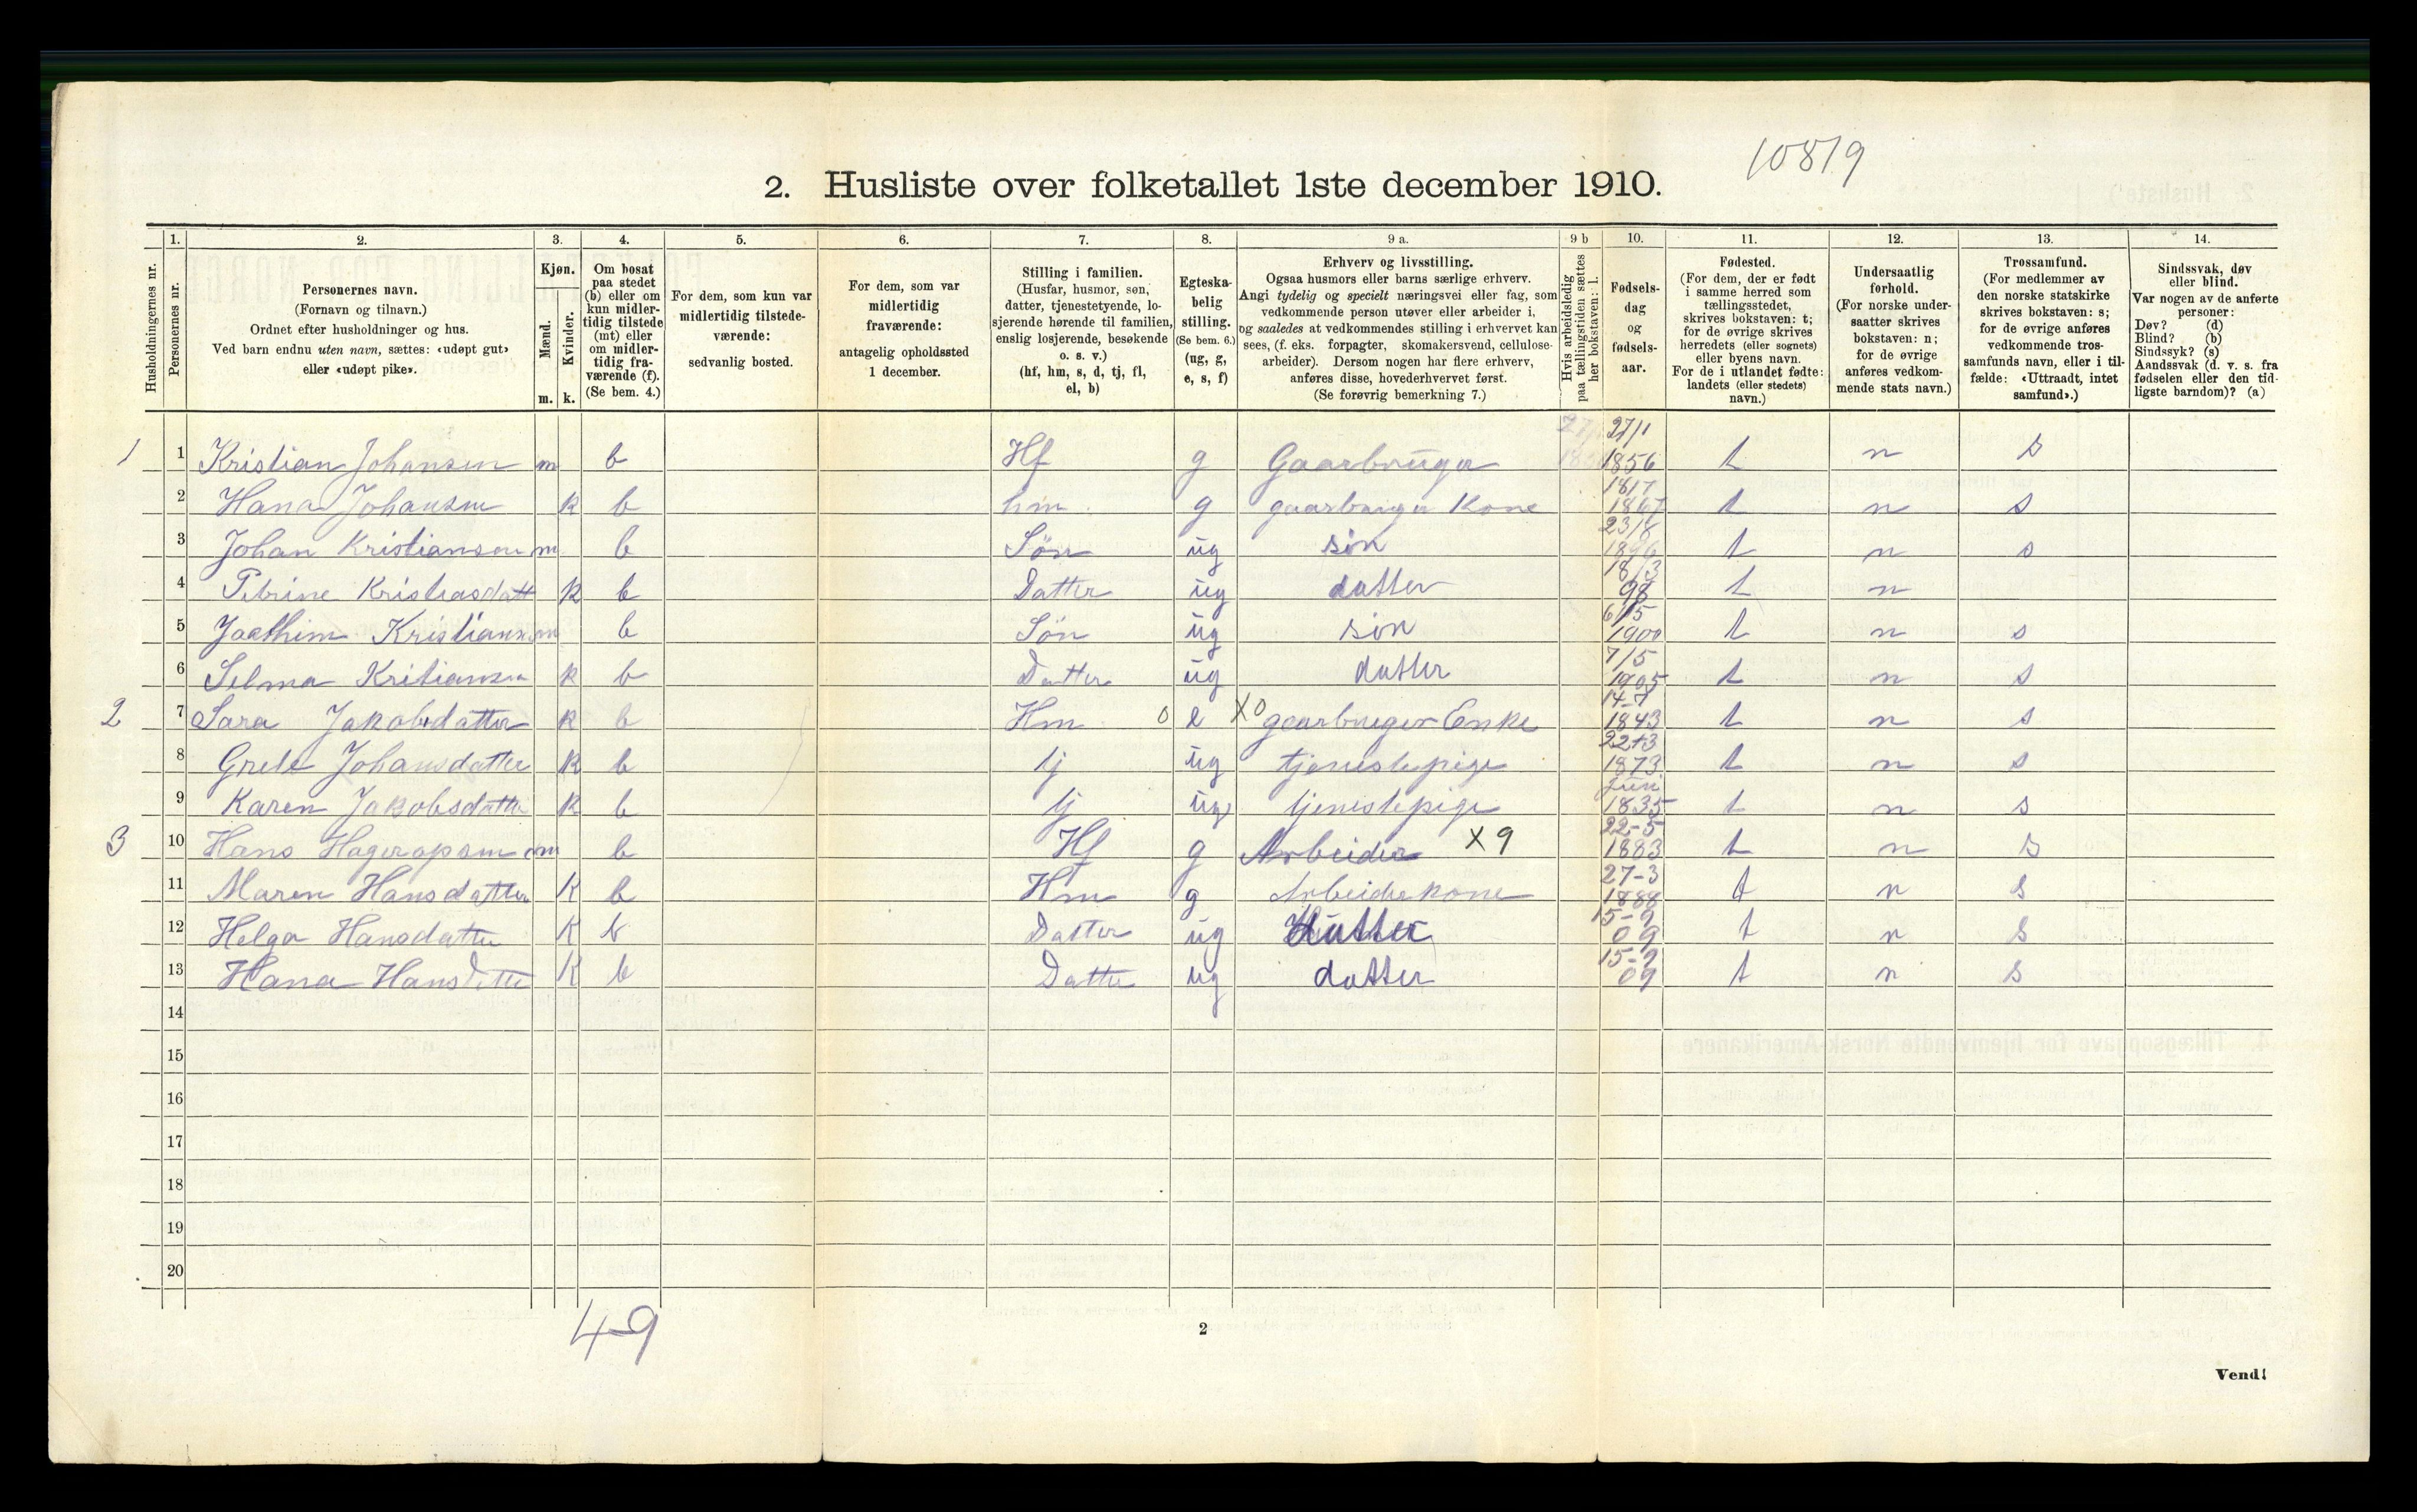 10819
2. Husliste over folketallet 1ste december 1910.
Husholdningernes nr.
1. Personernes nr.
2. Personernes navn. (Fornavn og tilnavn.) Ordnet efter husholdninger og hus. Ved barn endnu uten navn, sættes: «udøpt gut» eller «udøpt pike».
3. Kjøn. Mænd. m. Kvinder. k.
4. Om bosat paa stedet (b) eller om kun midlertidig tilstede (mt) eller om midlertidig fraværende (f). (Se bem. 4.)
5. For dem, som kun var midlertidig tilstedeværende: sedvanlig bosted.
6. For dem, som var midlertidig fraværende: antagelig opholdssted 1 december.
7. Stilling i familien. (Husfar, husmor, søn, datter, tjenestetyende, losjerende hørende til familien, enslig losjerende, besøkende o. s. v.) (hf, hm, s, d, tj, fl, el, b)
8. Egteskabelig stilling. (Se bem. 6.) (ug, g, e, s, f)
9 a. Erhverv og livsstilling. Ogsaa husmors eller barns særlige erhverv. Angi tydelig og specielt næringsvei eller fag, som vedkommende person utøver eller arbeider i, og saaledes at vedkommendes stilling i erhvervet kan sees, (f. eks. forpagter, skomakersvend, cellulosearbeider). Dersom nogen har flere erhverv, anføres disse, hovederhvervet først. (Se forøvrig bemerkning 7.)
9 b Hvis arbeidsledig paa tællingstiden sættes her bokstaven: l.
10. Fødselsdag og fødselsaar.
11. Fødested. (For dem, der er født i samme herred som tællingsstedet, skrives bokstaven: t; for de øvrige skrives herredets (eller sognets) eller byens navn. For de i utlandet fødte: landets (eller stedets) navn.)
12. Undersaatlig forhold. (For norske undersaatter skrives bokstaven: n; for de øvrige anføres vedkommende stats navn.)
13. Trossamfund. (For medlemmer av den norske statskirke skrives bokstaven: s; for de øvrige anføres vedkommende trossamfunds navn, eller i tilfælde: «Uttraadt, intet samfund».)
14. Sindssvak, døv eller blind. Var nogen av de anførte personer: Døv? (d) Blind? (b) Sindssyk? (s) Aandssvak (d. v. s. fra fødselen eller den tidligste barndom)? (a)
1 1 Kristian Johansen m b Hf g Gaarbruger 27/1 1856 t n s
2 Hana Johansen k b hm g gaarbruger Kone 18/7 1867 t n s
3 Johan Kristiansen m b Søn ug søn 23/8 1896 t n s
4 Petrine Kristiasdatt k b Datter ug datter 18/3 98 t n
5 Joathim Kristians m b Søn ug søn 6/5 1900 t n s
6 Selma Kritiansen k b Datter ug datter 7/5 1905 t n s
2 7 Sara Jakobsdatter k b Hm 0 e X0 gaarbruger Enke 14-7 1843 t n s
8 Grete Johansdatter k b tj ug tjenestepige 22-3 1873 t n s
9 Karen Jakobsdatter k b tj ug tjenestepige Juni 1835 t n s
3 10 Hans m b Hf g Arbeider X9 22-5 1883 t n s
11 Maren Hansdatter K b Hm g Arbeiderkone 27-3 1888 t n s
12 Helga Hansdatter K b Datter ug datter 15-9 09 t n s
13 Hana Hansdatter K b Datter ug datter 15-9 09 t n s
14
15
16
17
18
19
20
4-9
2
Vend!